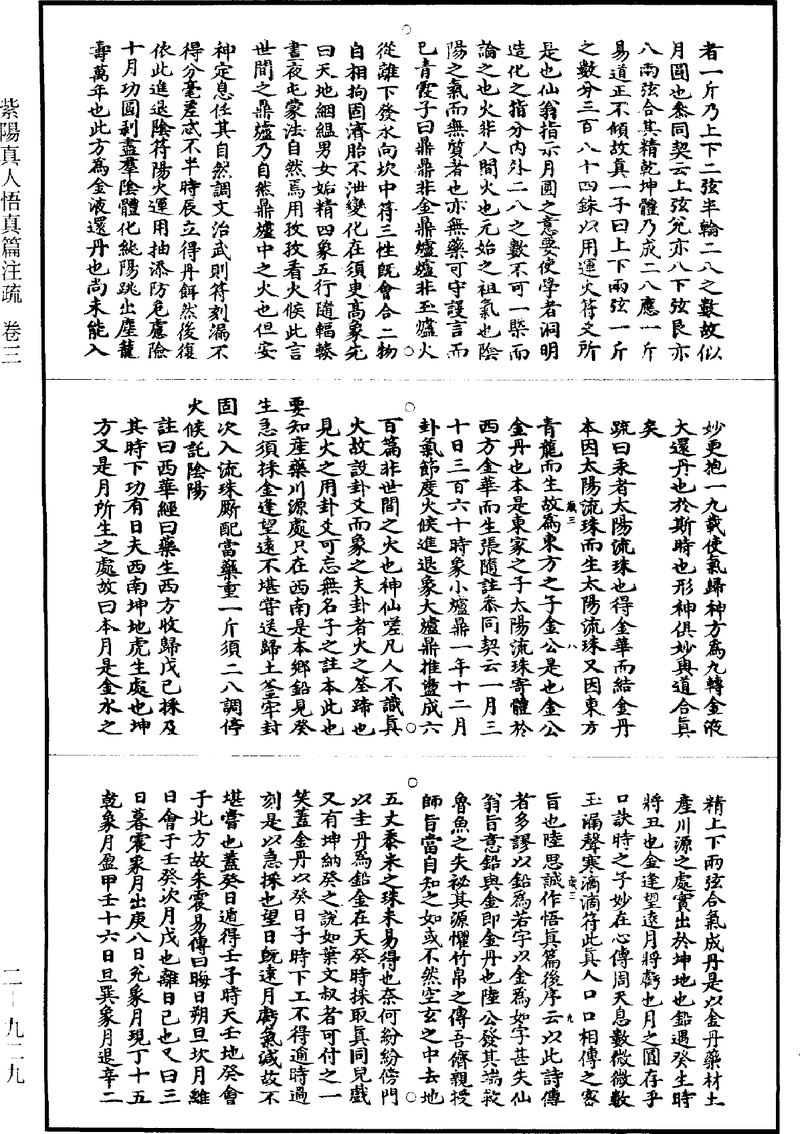 紫陽真人悟真篇注疏 卷三
二—九二九
者一斤乃上下二弦半輪二八之數故似
月圓也叅同契云上弦兌亦八下弦艮亦
八兩弦合其精乾坤體乃成二八應一斤
易道正不傾故真一子曰上下兩弦一斤
之數分三百八十四銖以用運火符爻所
是也仙翁指示月圓之意要使學者洞明
造化之指分內外二八之數不可一槩而
論之也火非人間火也元始之祖氣也陰
陽之氣而無質者也亦無藥可守謾言而
已青霞子曰鼎鼎非金鼎爐爐非玉爐火
從離下發水向坎中符三性旣會合二物
自相拘固濟胎不泄變化在須更高象先
曰天地絪縕男女姤精四象五行隨輻輳
晝夜屯蒙法自然焉用孜孜看火候此言
世間之鼎爐乃自然鼎爐中之火也但安
神定息任其自然調文治武則符刻漏不
得分毫差忒不半時辰立得丹餌然後復
依此進退陰符陽火運用抽添防危慮險
十月功圓剥盡羣陰體化純陽跳出塵籠
壽萬年也此方為金液還丹也尚未能入
妙更抱一九載使氣歸神方為九轉金液
大還丹也於斯時也形神俱妙與道合真
矣
疏曰汞者太陽流珠也得金華而結金丹
本因太陽流珠而生太陽流珠又因東方
青龍而生故為東方之子金公是也金公
金丹也本是東家之子太陽流珠寄體於
西方金華而生張隨註叅同契云一月三
十日三百六十時象小爐鼎一年十二月
卦氣節度火候進退象大爐鼎推盪成六
百篇非世間之火也神仙嗟凡人不識真
火故設卦爻而象之夫卦者火之筌蹄也
見火之用卦爻可忘無名子之註本此也
要知產藥川源處只在西南是本鄉鉛見癸
生急須採金逢望遠不堪嘗送歸土釜牢封
固次入流珠厮配當藥重一斤須二八調停
火候託陰陽
註曰西華經曰藥生西方收歸戊己採及
其時下功有日夫西南坤地虎生處也坤
方又是月所生之處故曰本月是金水之
精上下兩弦合氣成丹是以金丹藥材土
產川源之處實出於坤地也鉛遇癸生時
將丑也金逢望遠月將虧也月之圓存乎
口訣時之子妙在心傳周天息數微微數
玉漏聲寒滴滴符此真人口口相傳之密
旨也陸思誠作悟真篇後序云以此詩傳
者多謬以鉛為若字以金為如字甚失仙
翁旨意鉛與金即金丹也陸公發其端救
魯魚之失祕其源懼竹帛之傳吾儕親授
師旨當自知之如或不然空玄之中去地
五丈黍米之珠未易得也奈何紛紛傍門
以圭丹為鉛金在天癸時採取真同兒戲
又有坤納癸之說如葉文叔者可付之一
笑蓋金丹以癸日子時下工不得逾時過
刻是以急採也望日旣遠月虧氣減故不
堪嘗也蓋癸日遁得壬子時天壬地癸會
于北方故朱震易傳曰晦日朔旦坎月離
日會于壬癸次月戊也離日己也又曰三
日暮震象月出庚八日兌象月現丁十五
乾象月盈甲壬十六日旦巽象月退辛二